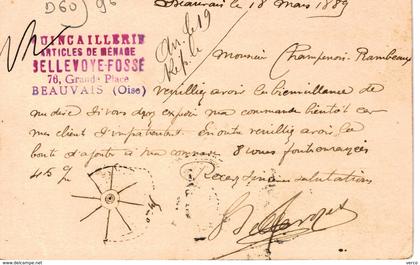 D60) 96
Beauvais le 18 Mars 1889
QUINCAILLERIE
ARTICLES DE MÉNAGE
BELLEVOYE-FOSSÉ
76, Grande Place
BEAUVAIS (Oise)
Rép. le
Monsieur Champenois Rambeaux
veuillez avoir la bienveillance de
me dire si vous avez expédié ma commande bientôt car
mes client s'impatientent. En outre veuillez avoir la
bonté d'ajouter à ma commande 8 roues fonte
45 c/m
Recevez sincères salutations
Bellevoye